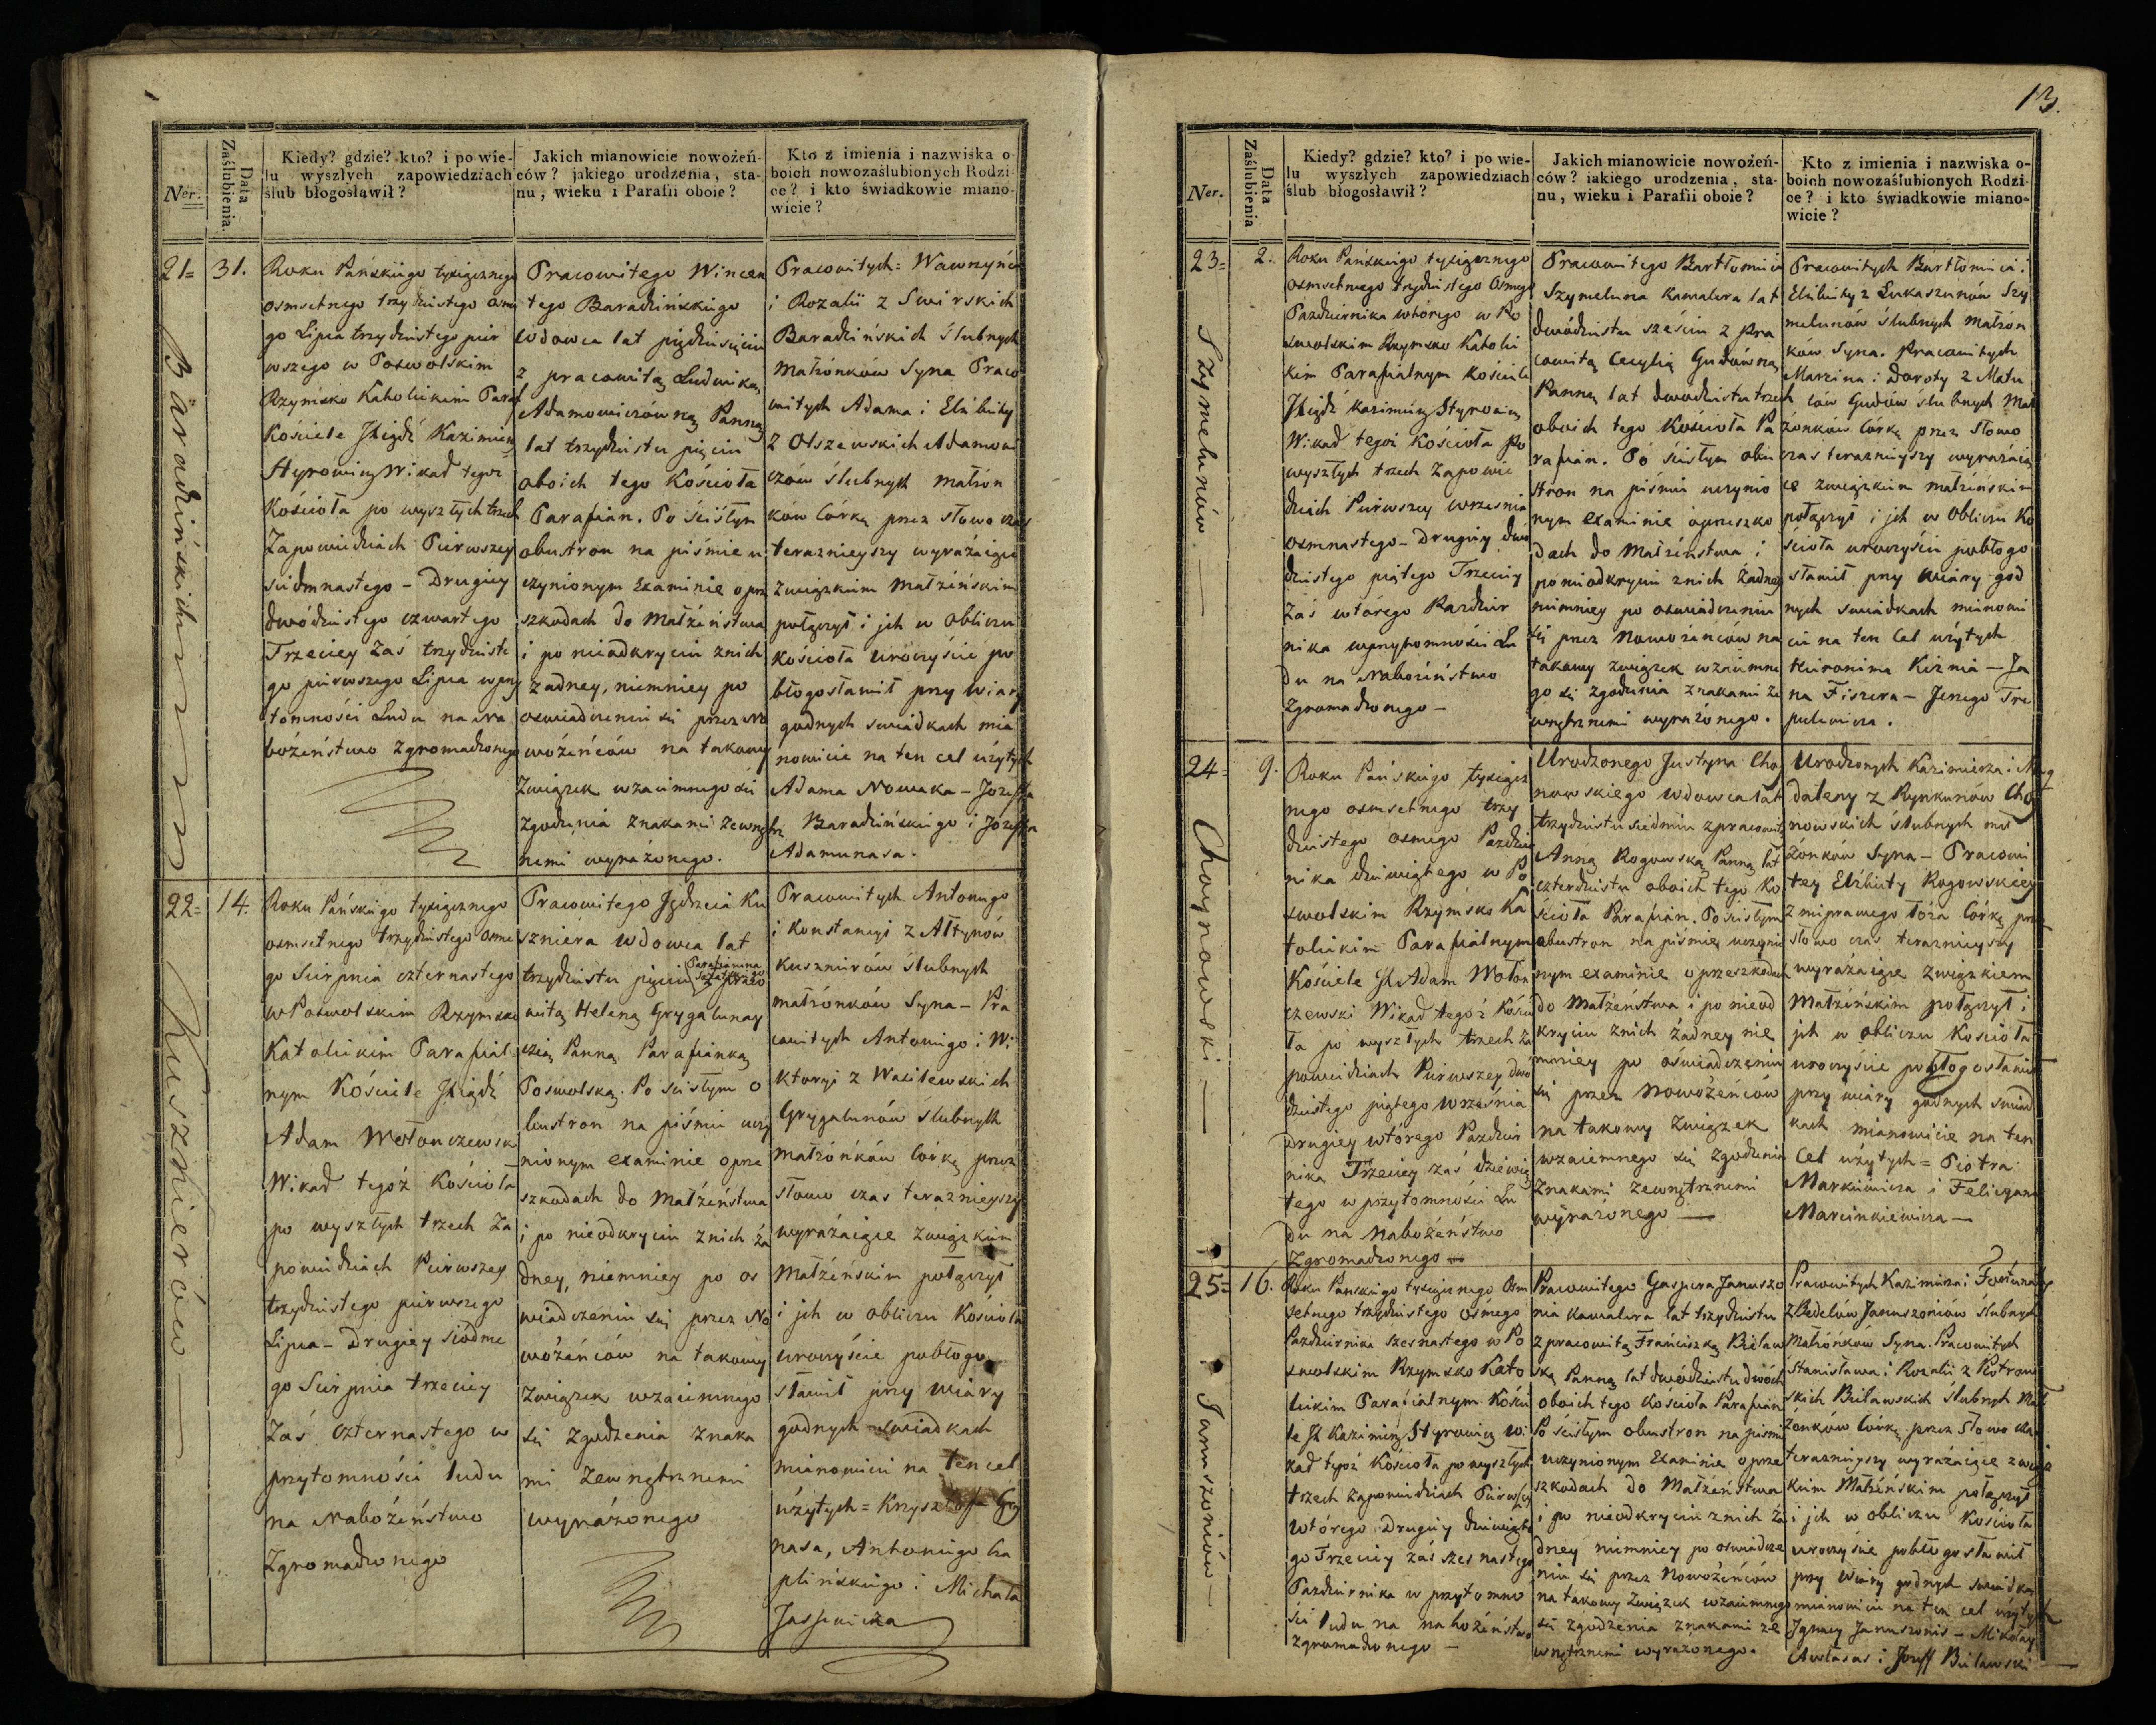 Ner.
Data Zaślubienia.
Kiedy? gdzie? kto? i po wie-
lu wyszłych zapowiedziach
ślub błogosławił?
Jakich mianowicie nowożeń-
ców? jakiego urodzenia, sta-
nu, wieku i Parafii oboie?
Kto z imienia i nazwiska o-
boich nowozaślubionych Rodzi-
ce? i kto świadkowie miano-
wicie?
21=
31.
Baradzińskich
Roku Pańskiego tysiącznego
osmsetnego trzydziestego osme
go Lipca trzydziestego pier
wszego w Poswolskim
Rzymsko Katolickim Paraf
Kościele JXiądź Kazimierz
Styrowicz Wikad tegoż
Kościoła po wyszłych trzech
Zapowiedziach Pierwszey
siedmnastego - Drugiey
dwódziestego czwartego
Trzeciey zaś trzydzieste
go pierwszego Lipca w przy
tomności Ludu na Na
bożeństwo zgromadzonego
Pracowitego Wincen
tego Baradzińskiego
Wdowca lat piędziesięciu
z pracowitą Ludwiką
Adamowiczówną Panną
lat trzydziestu pięciu
oboich tego Kościoła
Parafian. Po ścisłym
obustron na piśmie u
czynionym Examinie o prze
szkodach do Małżeństwa
i po nieodkryciu znich
żadney, niemniey po
oswiadczeniu się przez No
wożeńców na takowy
Związek wzaiemnego się
Zgodzenia znakami zewnętrz
nemi wyrażonego.
Pracowitych = Wawrzyńca
i Rozalii z Swirskich
Baradzińskich Ślubnych
Małżonków Syna Praco
witych Adama i Elżbiety
z Olszewskich Adamowi
czów ślubnych małżon
ków Córkę przez słowo czas
teraznieyszy wyrażaiące
Związkiem Małżeńskim
połączył i jch w obliczu
Kościoła uroczyście po
błogosławił przy wiary
godnych swiadkach mia
nowicie na ten cel użytych
Adama Nowaka - Jozefa
Baradzińskiego i Jozefa
Adamunasa.
22=
14.
Kusznierów
Roku Pańskiego tysiącznego
osmsetnego trzydziestego osme
go Sierpnia czternastego
w Poswolskim Rzymsko
Katolickim Parafial
nym Kościele JXiądź
Adam Mołonczewski
Wikad tegoż Kościoła
po wyszłych trzech Za
powiedziach Pierwszey
trzydziestego pierwszego
Lipca - Drugiey siodme
go Sierpnia trzeciey
Zaś czternastego w
przytomności ludu
na Nabożeństwo
Zgromadzonego
Pracowitego Jędrzeia Ku
szniera Wdowca lat
Parafianina
trzydziestu pięciu z praco
witą Heleną Grygalunay
cią Panną Parafianką
Poswolską. Po ścisłym o
bustron na piśmie uczy
nionym examinie o prze
szkodach do Małżeństwa
i po nieodkryciu znich ża
dney, niemniey po os
wiadczeniu się przez No
wożeńców na takowy
Związek wzaiemnego
się Zgodzenia znaka
mi Zewnętrznemi
wyrażonego
Pracowitych Antoniego
i Konstancyi z Ałtynów
Kusznierów ślubnych
małżonków Syna - Pra
cowitych Antoniego i Wi
ktoryi z Wasilewskich
Grygalunów ślubnych
małżonków Córkę przez
słowo czas teraznieyszy
wyrażaiące związkiem
Małżeńskim połączył
i jch w obliczu Kościoła
uroczyście pobłogo
sławił przy wiary
godnych swiadkach
mianowicie na ten cel
użytych = Krzysztofa Gry
nasa, Antoniego Cza
plińskiego i Michała
Jasiewicza
13.
Ner.
Data Zaślubienia
Kiedy? gdzie? kto? i po wie-
lu wyszłych zapowiedziach
ślub błogosławił?
Jakich mianowicie nowożeń-
ców? iakiego urodzenia, sta-
nu, wieku i Parafii oboie?
Kto z imienia i nazwiska o-
boich nowozaślubionych Rodzi-
ce? i kto świadkowie miano-
wicie?
23=
2.
Szymelunów
Roku Pańskiego tysiącznego
osmsetnego trzydziestego Osmego
Pazdziernika wtórego w Po
swolskim Rzymsko Katolic
kim Parafialnym Kościele
JXiądź Kazimierz Styrowicz
Wikad tegoż Kościoła po
wyszłych trzech Zapowie
dziach Pierwszey wrzesnia
osmnastego - Drugiey dwu
dziestego piątego Trzeciey
Zaś wtórego Pazdzier
nika w przytomności Lu
du na Nabożeństwo
Zgromadzonego -
Pracowitego Bartłomieia
Szymeluna Kawalera lat
dwódziestu sześciu z pra
cowitą Cecylią Gudówną
Panną lat dwodziestu trzech
oboich tego Kościoła Pa
rafian. Po ścisłym obu
stron na piśmie uczynio
nym examinie oprzeszko
dach do Małżeństwa i
ponieodkryciu znich żadney
niemniey po oswiadczeniu
się przez Nowożeńców na
takowy związek wzaiemne
go się zgodzenia znakami ze
wnętrznemi wyrażonego.
Pracowitych Bartłomieia i
Elżbiety z Łukaszunów Szy
melunów ślubnych małżon
ków Syna. Pracowitych
Marcina i Doroty z Matu
lów Gudów ślubnych Mał
żonków Córkę przez słowo
czas teraznieyszy wyrażaią
ce związkiem małżeńskim
połączył i jch w obliczu Ko
ścioła uroczyście pobłogo
sławił przy wiary god
nych swiadkach mianowi
cie na ten Cel użytych
Hieronima Kiznia - Ja
na Fiszera - Jerzego Tre
pulewicza.
24=
9.
Choynowski
Roku Pańskiego tysiącz
nego osmsetnego trzy
dziestego osmego Pazdzier
nika dziewiątego w Po
swolskim Rzymsko Ka
tolickim Parafialnym
Kościele JX Adam Mołon
czewski Wikad tegoż Kościo
ła po wyszłych trzech Za
powiedziach Pierwszey dwó
dziestego piątego Września
Drugiey wtórego Pazdzier
nika Trzeciey zaś dziewią
tego w przytomności Lu
du na Nabożeństwo
Zgromadzonego
Urodzonego Justyna Choy
nowskiego Wdowca lat
trzydziestu siedmiu z pracowitą
Anną Rogowską Panną lat
czterdziestu oboich tego Ko
ścioła Parafian. Po ścisłym
obustron na piśmie uczynio
nym examinie o przeszkodach
do Małżeństwa i po nieod
kryciu znich żadney nie
mniey po oswiadczeniu
się przez Nowożeńców
na takowy Związek
wzaiemnego się zgodzenia
Znakami zewnętrznemi
wyrażonego
Urodzonych Kazimierza i Mag
daleny z Rynkunów Choy
nowskich ślubnych mał
żonków Syna - Pracowi
tey Elżbiety Rogowskiey
z nieprawego łoża Córkę prze
słowo czas teraznieyszy
wyrażaiące związkiem
Małżeńskim połączył i
jch w obliczu Kościoła
uroczyście pobłogosławił
przy wiary godnych swiad
kach mianowicie na ten
Cel użytych = Piotra
Markiewicza i Felicyana
Marcinkiewicza -
25=
16.
Januszoniów
Roku Pańskiego tysiącznego Osm
setnego trzydziestego osmego
Pazdziernika szesnastego w Po
swolskim Rzymsko Kato
lickim Parafialnym Koście
le JX Kazimierz Styrowicz Wi
kad tegoż Kościoła po wyszłych
trzech zapowiedziach Pierwszey
wtórego Drugiey dziewiąte
go Trzeciey zaś szesnastego
Pazdziernika w przytomno
ści ludu na nabożeństwo
zgromadzonego -
Pracowitego Gaspera Januszo
nia Kawalera lat trzydziestu
z pracowitą Franciszką Bielaw
ską Panną lat dwódziestu dwóch
oboich tego Kościoła Parafian
Po ścisłym obustron na pismie
uczynionym Examinie o prze
szkodach do Małżeństwa
i po nieodkryciu znich ża
dney niemniey po oswiadcze
niu się przez Nowożeńców
na takowy Związek wzaiemnego
się zgodzenia znakami ze
wnętrznemi wyrażonego.
Pracowitych Kazimierza i Fortunaty
z Bedelów Januszoniów ślubnych
Małżonków Syna. Pracowitych
Stanisława i Rozalii z Piotrow
skich Bielawskich ślubnych Mał
żonków Córkę przez Słowo czas
teraznieyszy wyrażaiące związ
kiem Małżeńskim połączył
i jch w obliczu Kościoła
uroczyście pobłogosławił
przy wiary godnych swiadkach
mianowicie na ten cel użytych
Jgnacy Januszonis - Mikołay
Awłasas i Jozeff Bielawski